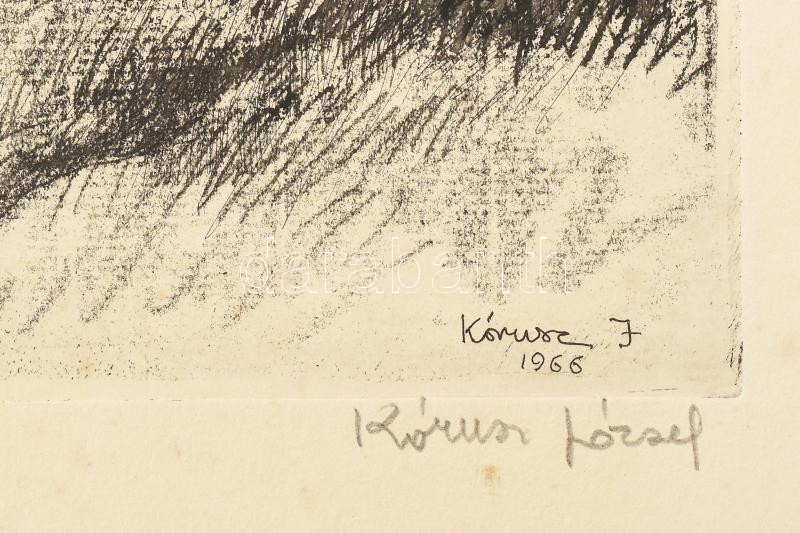 darabanth
Kórusz J
1966
Kórusz József